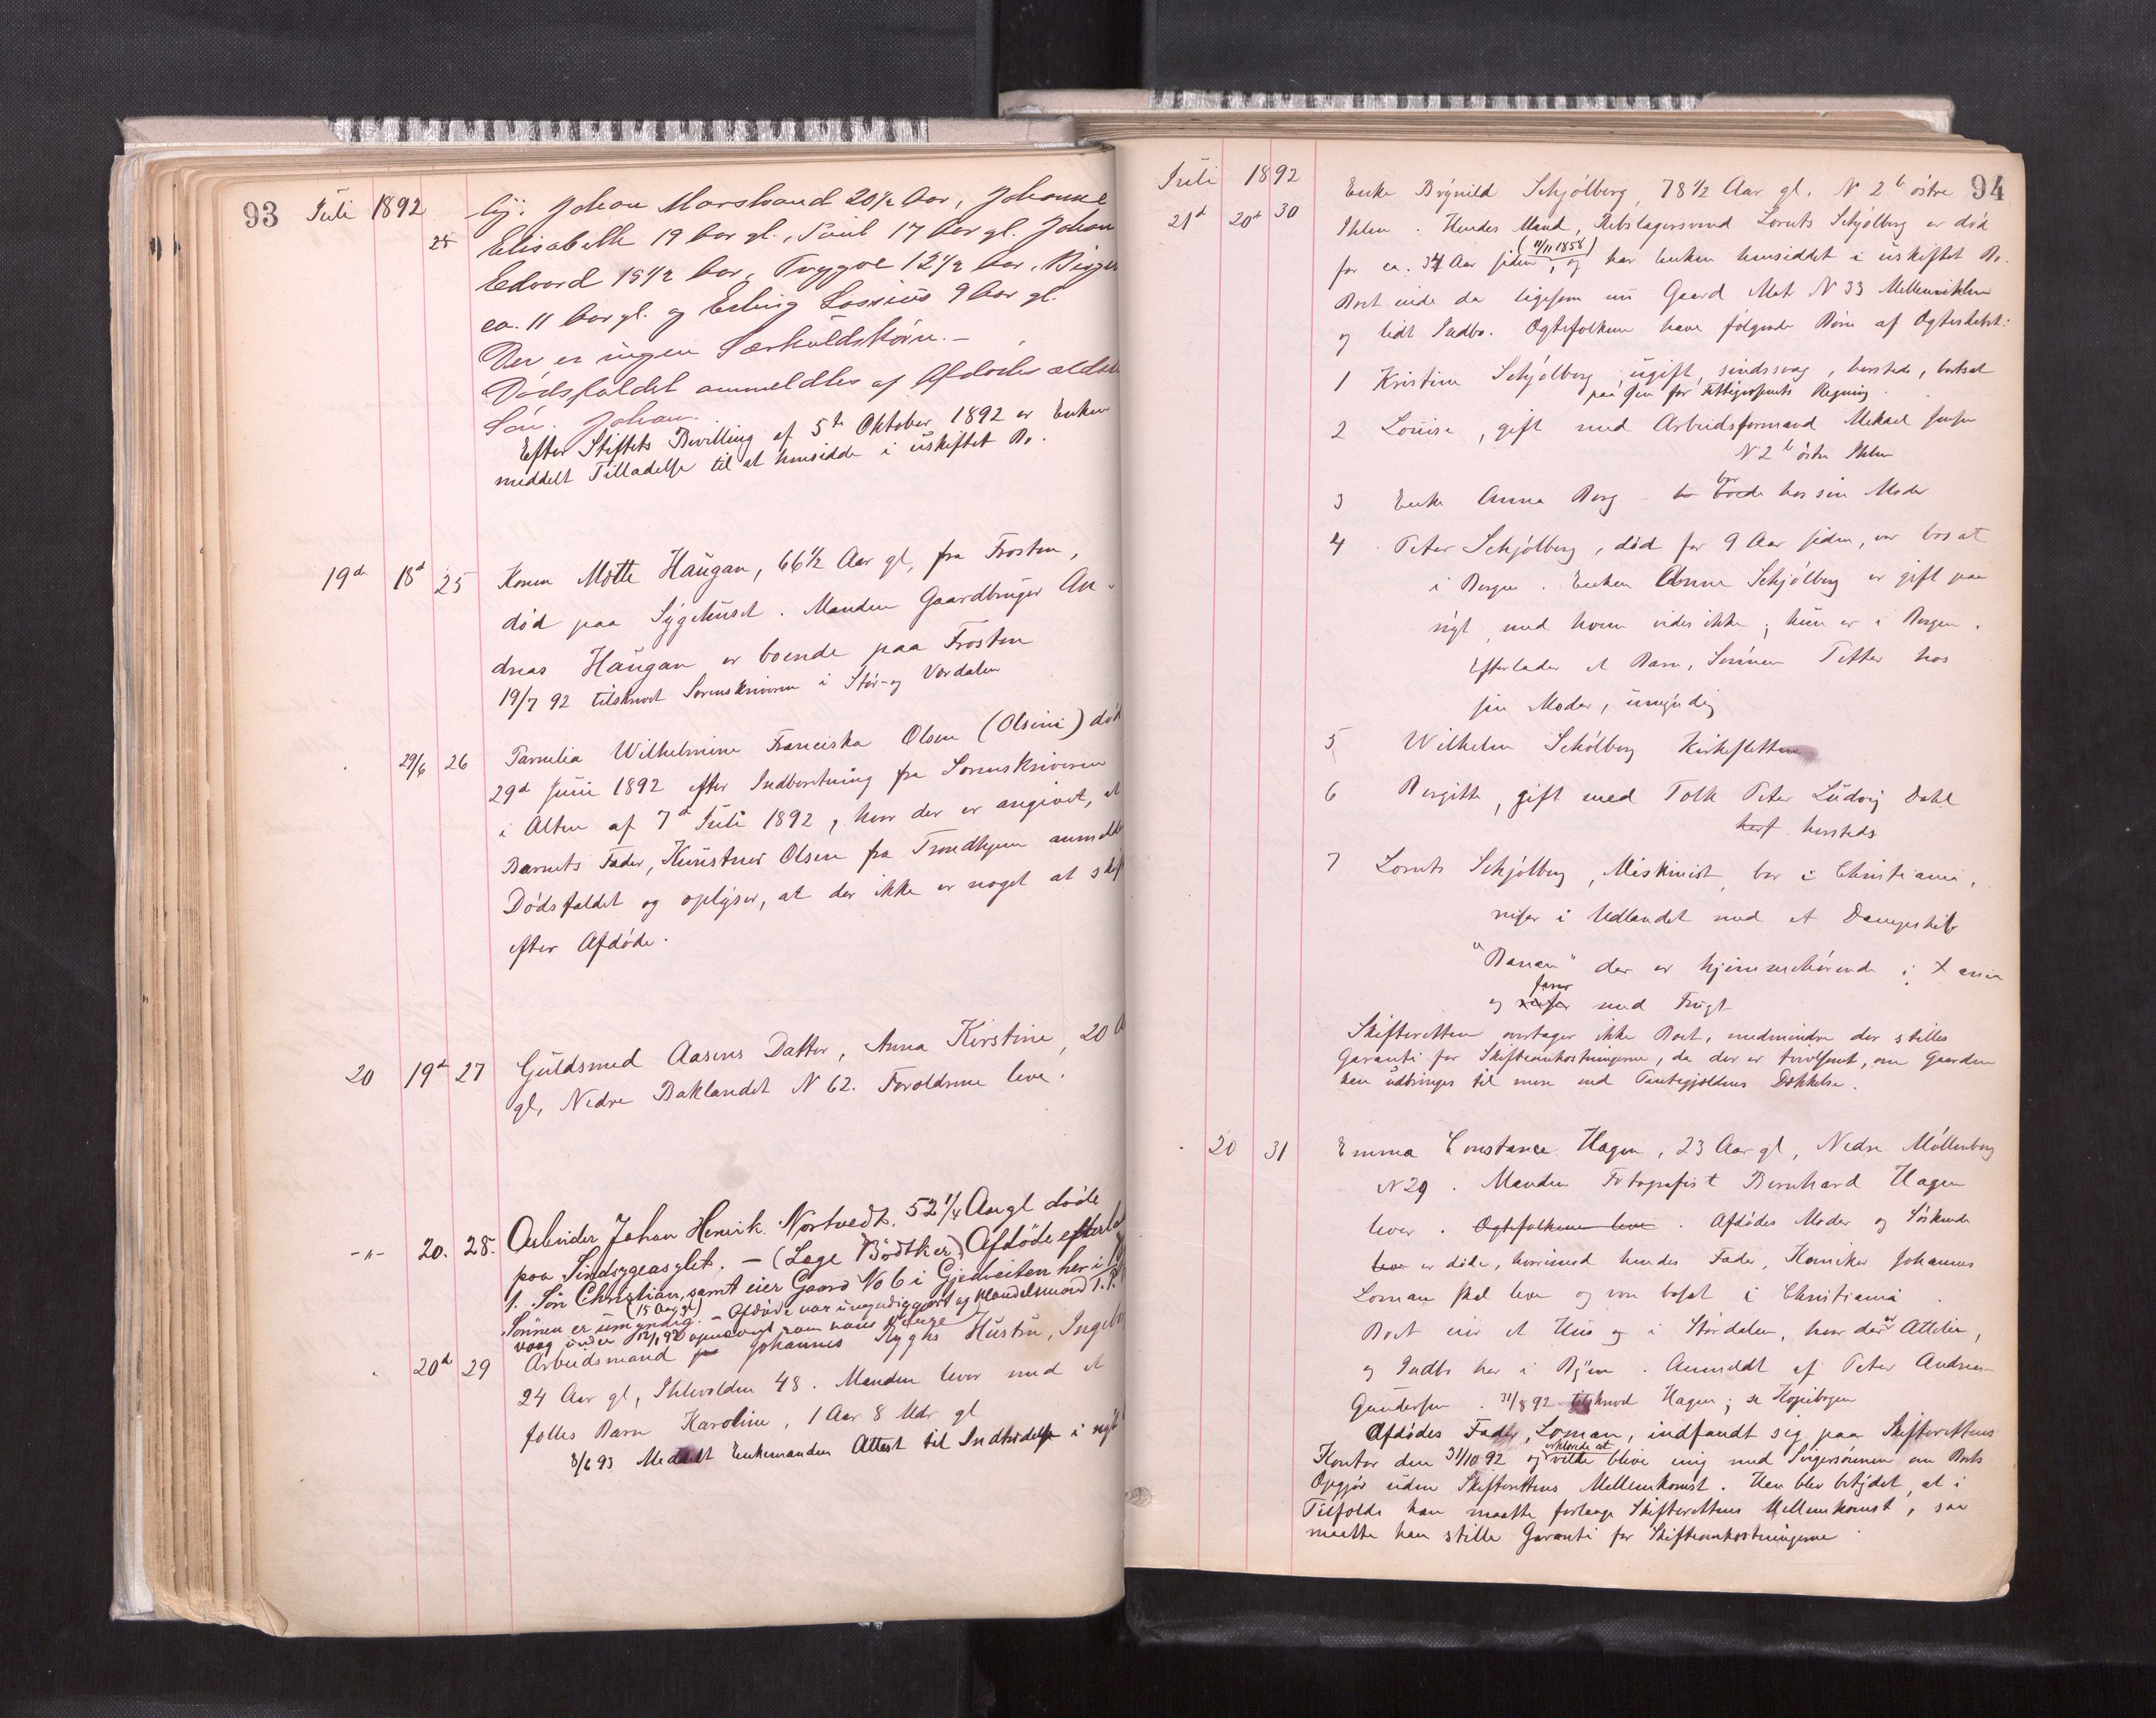 93 Juli 1892
25 by: Johan Marstrand 20½ Aar, Johanne
Elisabeth 19 Aar gl., Paul 17 Aar gl. Johan
Edvard 15½ Aar, Trygve 12½ Aar, Birger
ca. 11 Aar gl. og Erling Lossius 9 Aar gl.
Der er ingen Særkuldsbörn. –
Dödsfaldet anmeldtes af Afdödes ældste
Sön. Johan.
Efter Stiftets Bevilling af 5te Oktober 1892 er Enken
meddelt Tilladelse til at hensidde i uskiftet Bo.
19de 18d 25 Konen Mette Haugan, 66½ Aar gl, fra Frosten,
död paa Sygehuset. Manden Gaardbruger An-
dreas Haugan er boende paa Frosten
19/7 92 tilskrevet Sorenskriveren i Stör- og Værdalen
29/6 26 Parnelia Wilhelmine Franciska Olsen (Olsini) död
29d Juni 1892 efter Indberetning fra Sorenskriveren
i Alten af 7d Juli 1892, hvor der er angivet, at
Barnets Fader, Kunstner Olsen fra Trondhjem anmeldte
Dödsfaldet og oplyser, at der ikke er noget at skif
efter Afdöde.
20 19de 27 Guldsmed Aasens Datter, Anna Kirstine, 20 A
gl, Nedre Baklandet N 62. Forældrene leve.
-"- 20. 28. Arbeider Johan Henrik Nortvedt, 52 1/4 Aar gl döde
paa Sindsygeasylet. – (Læge Bödtker) Afdöde efterlod
1. Sön Christian, samt eier Gaard No 6 i Gjedveiten her i
(15 Aar gl)
Sönnen er umyndig. – Afdöde var umyndiggjort og Handelsmand T. P.
vaag under 12/1 92 opnævnt som hans Værge
20d 29 Arbeidsmand Johannes Ryghs Hustru, Ingebor
24 Aar gl, Ihlevolden 48. Manden lever med et
fælles Barn Karoline, 1 Aar 8 Mdr gl
8/6 93 Meddelt Enkemanden Attest til Indtrædelse i nyt
Juli 1892 94
21d 20d 30 Enke Brynild Schjölberg, 78½ Aar gl. N 2b östre
Ihlen. Hendes Mand, Rebslagersvend Lorents Schjölberg er död
for ca. 34 Aar siden (11/11 1858), og har Enken hensiddet i uskiftet Bo.
Boet eiede da ligesom nu Gaard Matr N 33 Mellemihlen
og lidt Indbo. Ægtefolkene have fölgende Börn af Ægteskabet:
1 Kristine Schjölberg ugift, sindssvag, hersteds, bortsat
paa for Fattigvæsenets Regning.
2 Louise, gift med Arbeidsformand Mekael Jensen
N 2b östre Ihlen
3 Enke Anna Berg – bor boede hos sin Moder
4 Peter Schjölberg, död for 9 Aar siden, var bosat
i Bergen. Enken Anna Schjölberg er gift paa
nyt, med hvem vides ikke; hun er i Bergen.
Efterlader et Barn, Sönnen Petter hos
sin Moder, umyndig
5 Wilhelm Schölberg Kirkesletten
6 Bergitte, gift med Tolk Peter Ludvig Dahl
hersteds
7 Lorents Schjölberg, Maskinist, bor i Christiania,
reiser i Udlandet med et Dampskib
"Banan" der er hjemmehörende i Xania
og reiser farer med Frugt
Skifteretten overtager ikke Boet, medmindre der stilles
Garanti for Skifteomkostningerne, da der er tvivlsomt, om Gaarden
kan udbringes til mere end Pantegjældens Dækkelse.
20 31 Emma Constance Hagen, 23 Aar gl, Nedre Möllenberg
N 29. Manden Fotografist Bernhard Hagen
lever. Ægtefolkene leve. Afdödes Moder og Söskende
leve er döde, hvorimod hendes Fader, Johannes
Loman skal leve og være bosat i Christiania.
Boet eier et Hus og i Stördalen, hvor der er Attelier,
og Indbo her i Byen. Anmeldt af Peter Andreas
Gundersen. 31/8 92 tilskrevet Hagen; se Kopibogen
Afdödes Fader, Loman, indfandt sig paa Skifterettens
Kontor den 31/10 92 og erklærede at ville blive enig med Svigersönnen om Boets
Opgjör uden Skifterettens Mellemkomst. Han blev betydet, at i
Tilfælde han maatte forlange Skifterettens Mellemkomst, saa
maatte han stille Garanti for Skifteomkostningerne